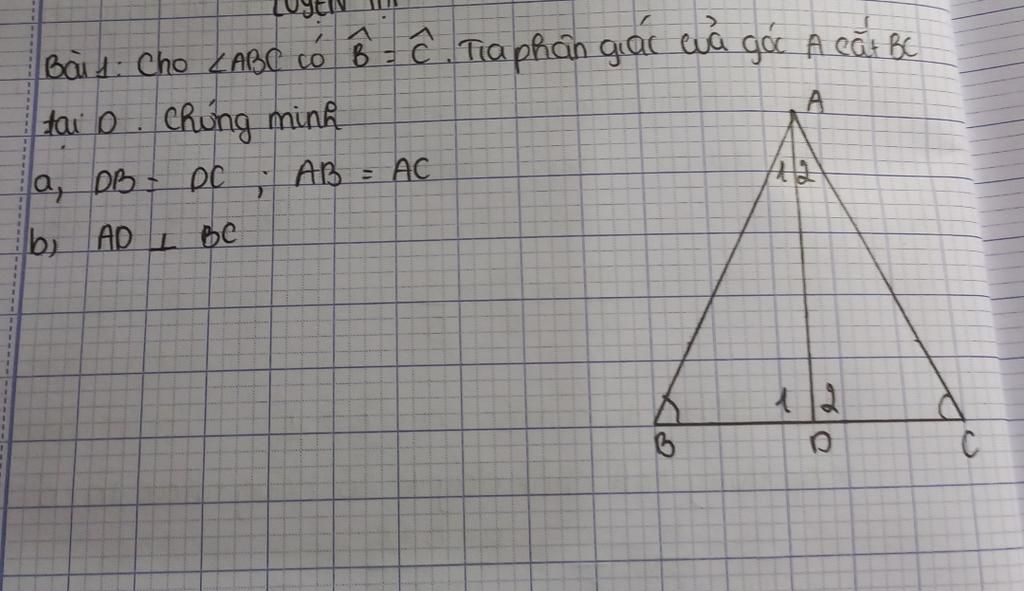 LUYỆN
Bài 1: Cho ∠ABC có B̂ = Ĉ. Tia phân giác của góc A cắt BC
tại D. Chứng minh
a, DB = DC ; AB = AC
b, AD ⊥ BC
A
1 2
1 2
B D C